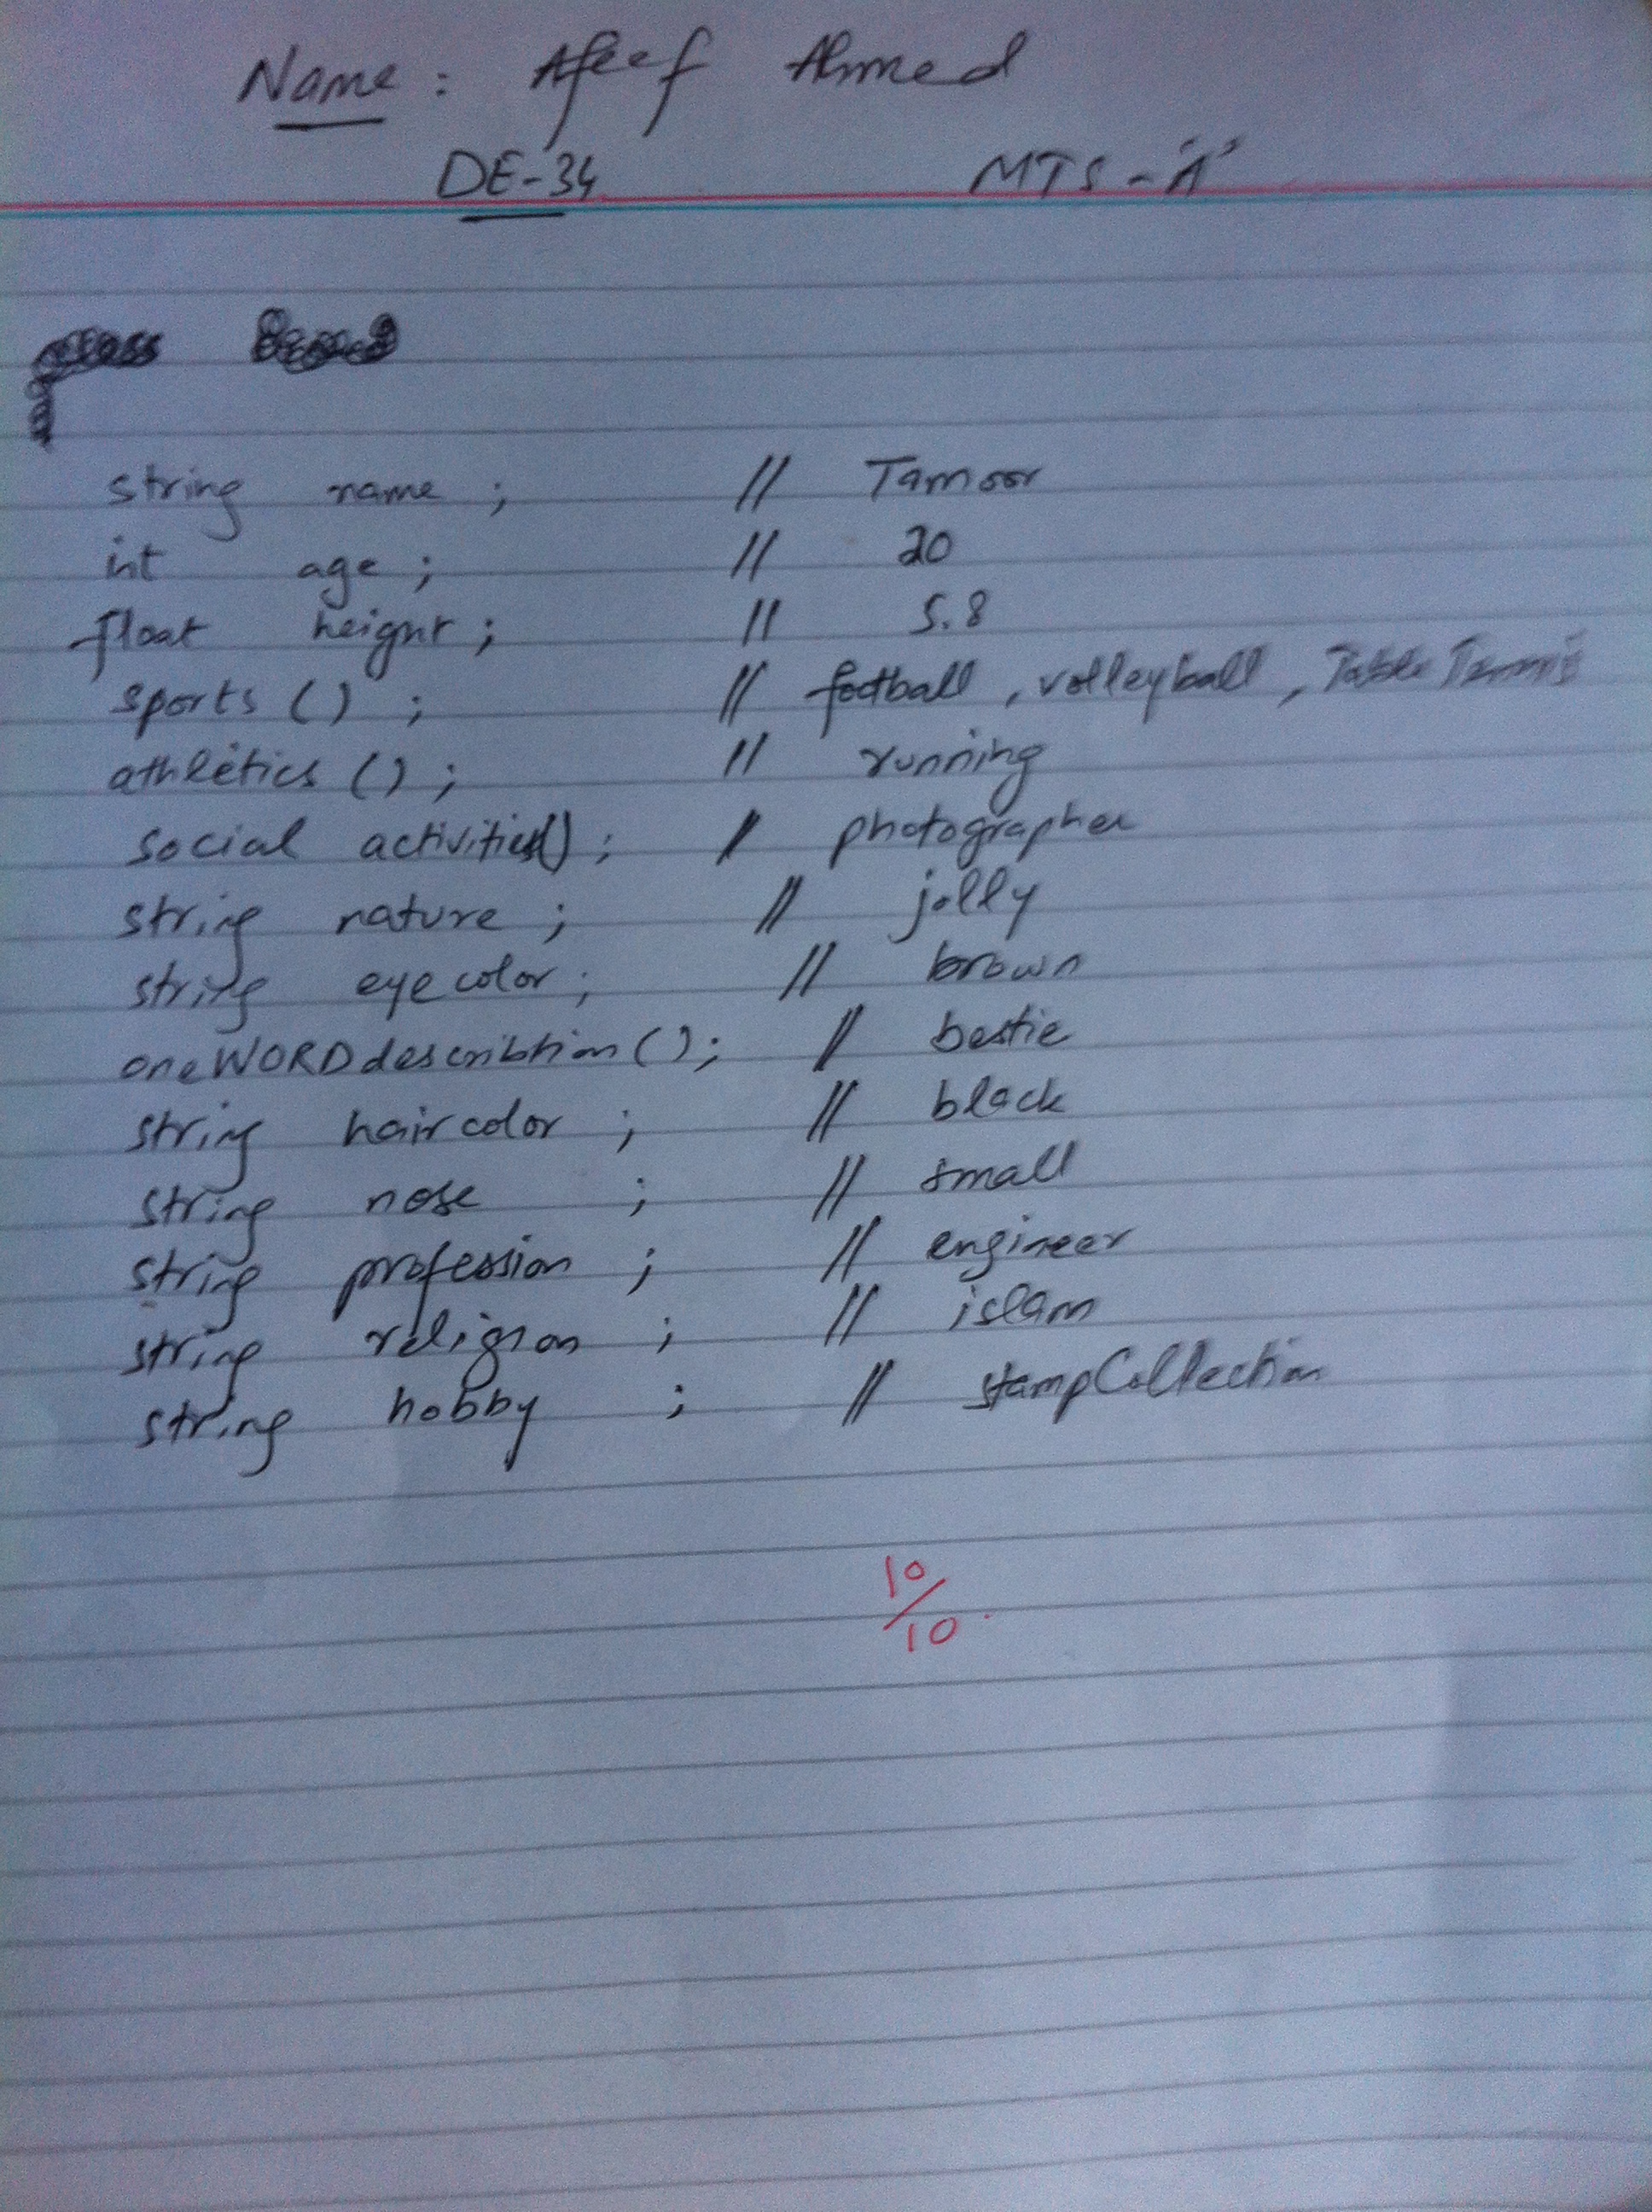 Name : Afeef Ahmed
DE-34 MTS-'A'
class
string name ; // Tamoor
int age ; // 20
float height ; // 5.8
sports () ; // football , volleyball , Table Tennis
athletics () ; // running
social activities() ; // photographer
string nature ; // jolly
string eye color ; // brown
oneWORDdescribtion () ; // bestie
string hair color ; // black
string nose ; // small
string profession ; // engineer
string religion ; // islam
string hobby ; // stampCollection
10/10